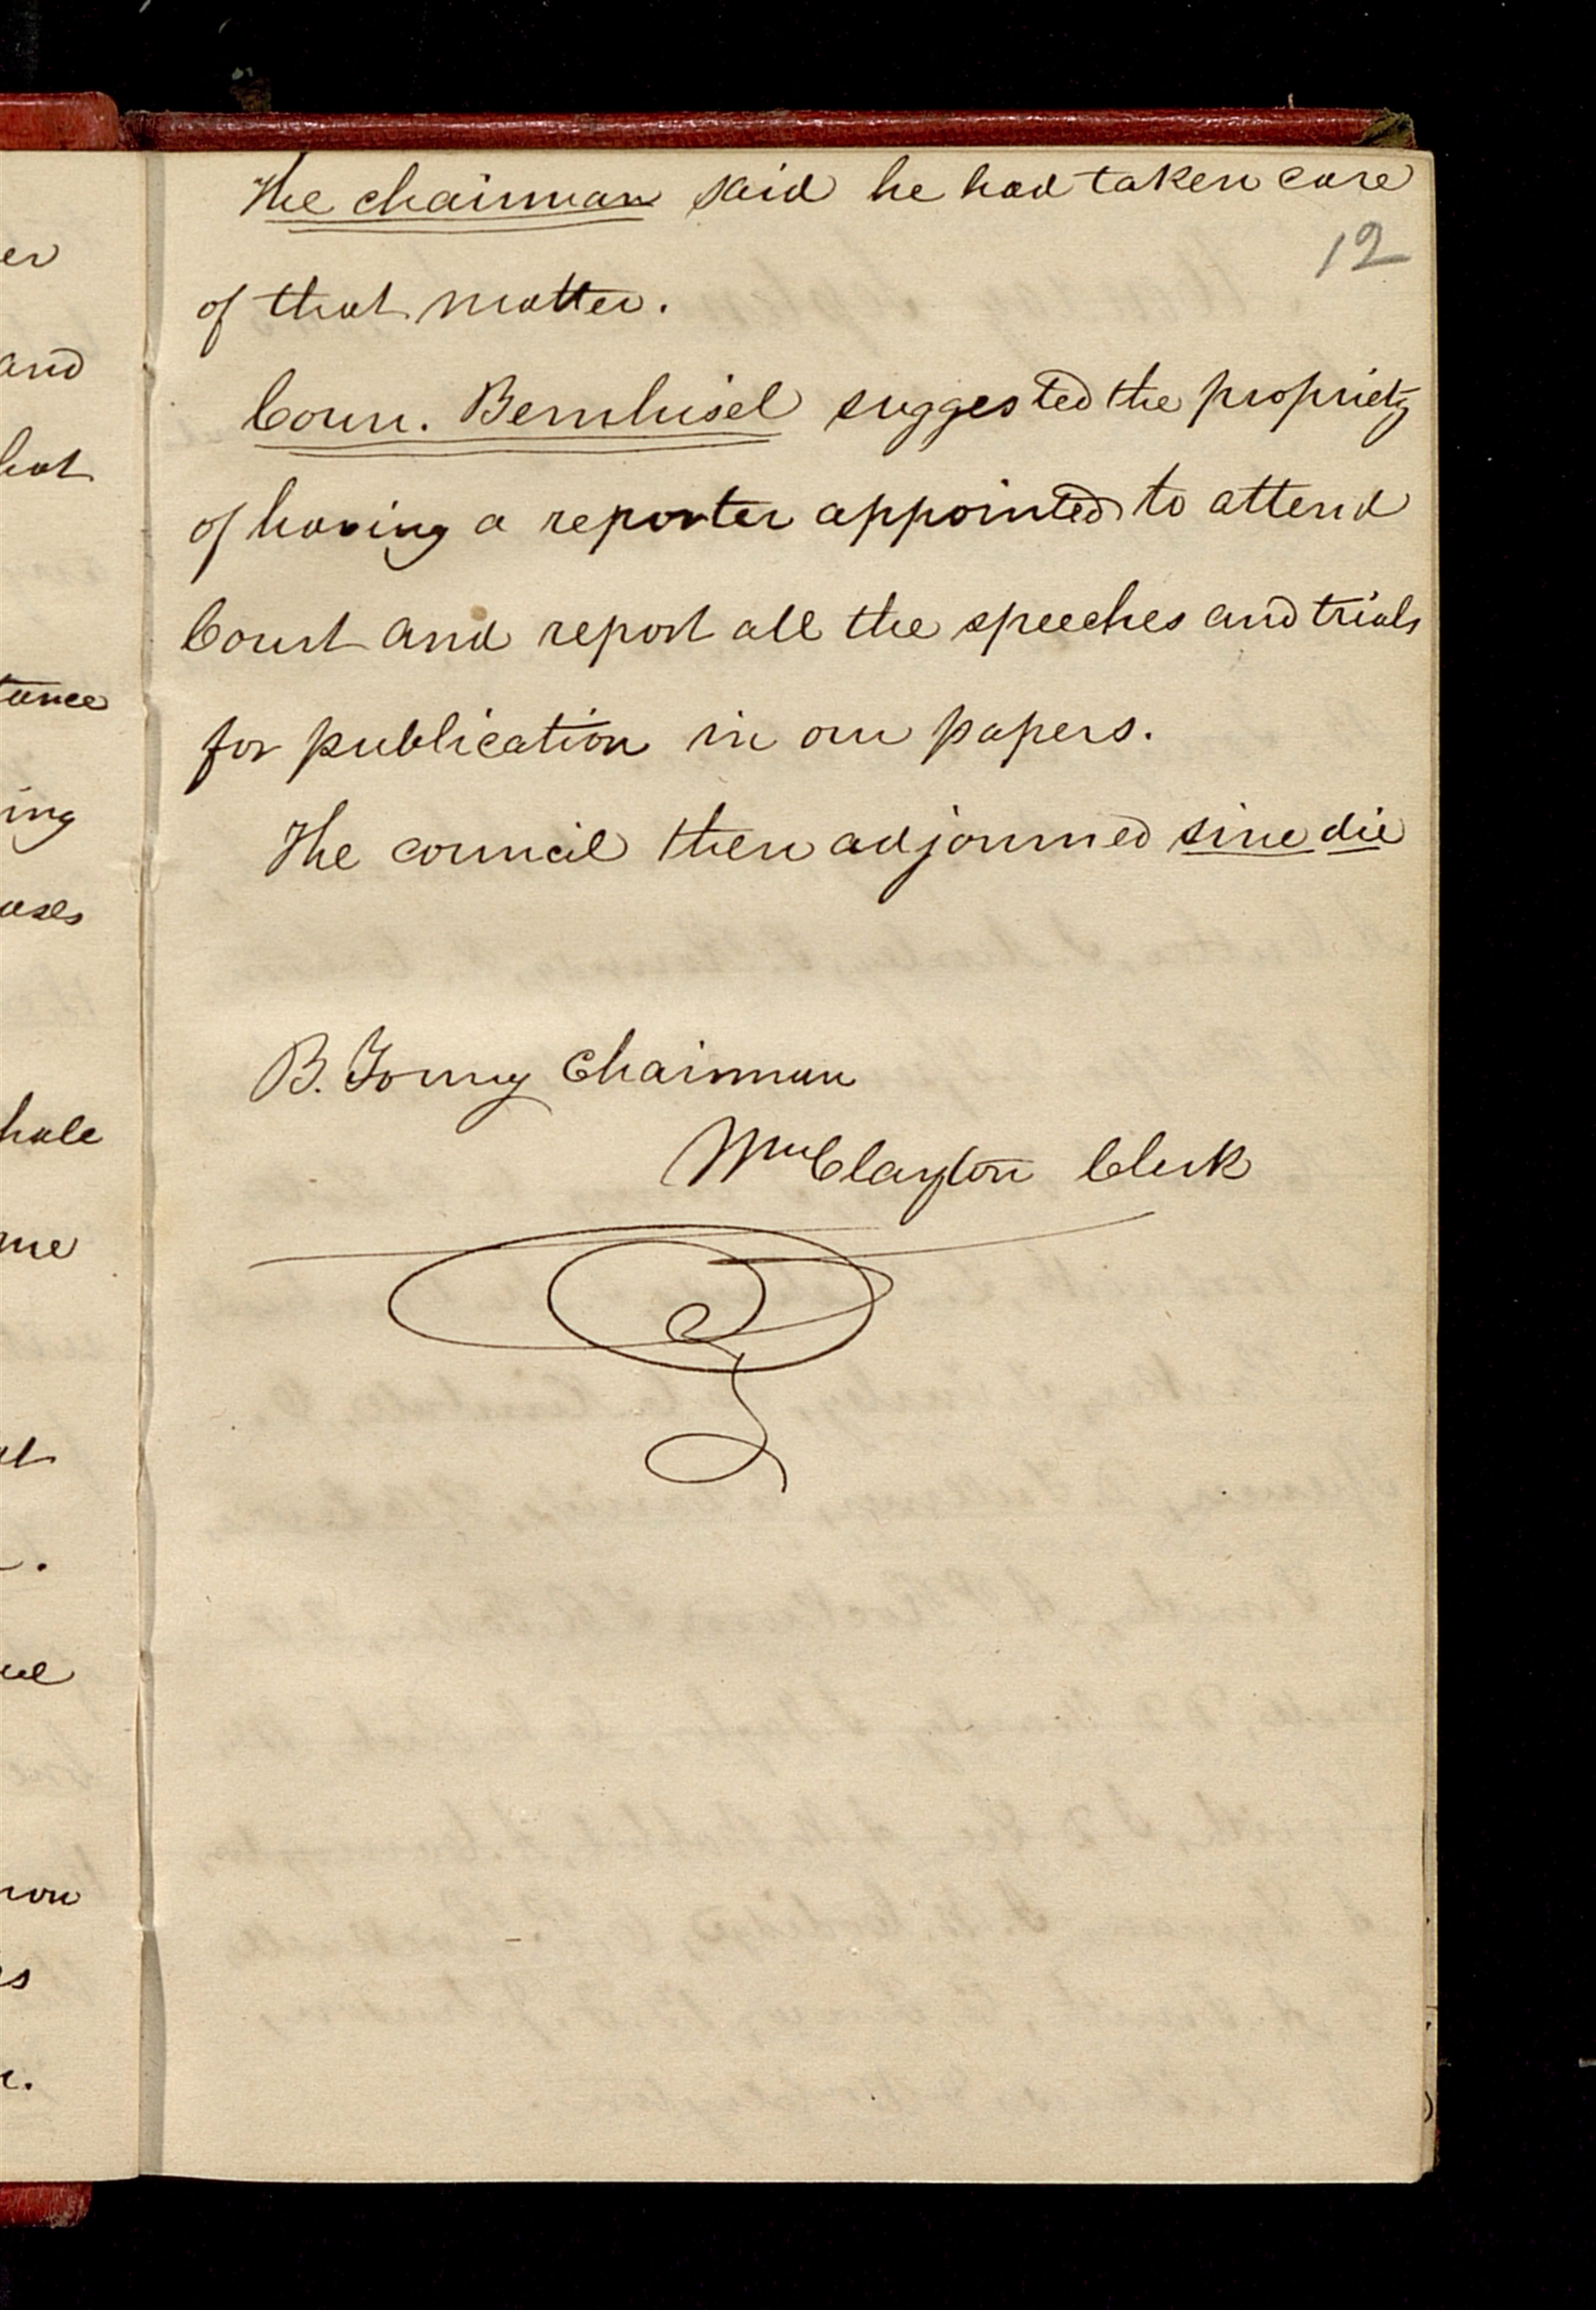 The chairman said he had taken care
12
of that matter.
Coun. Bernhisel suggested the propriety
of having a reporter appointed to attend
Court and report all the speeches and trials
for publication in our papers.
The council then adjourned sine die
B. Young Chairman
Wm Clayton Clerk
er
and
hat
tance
ing
hole
me